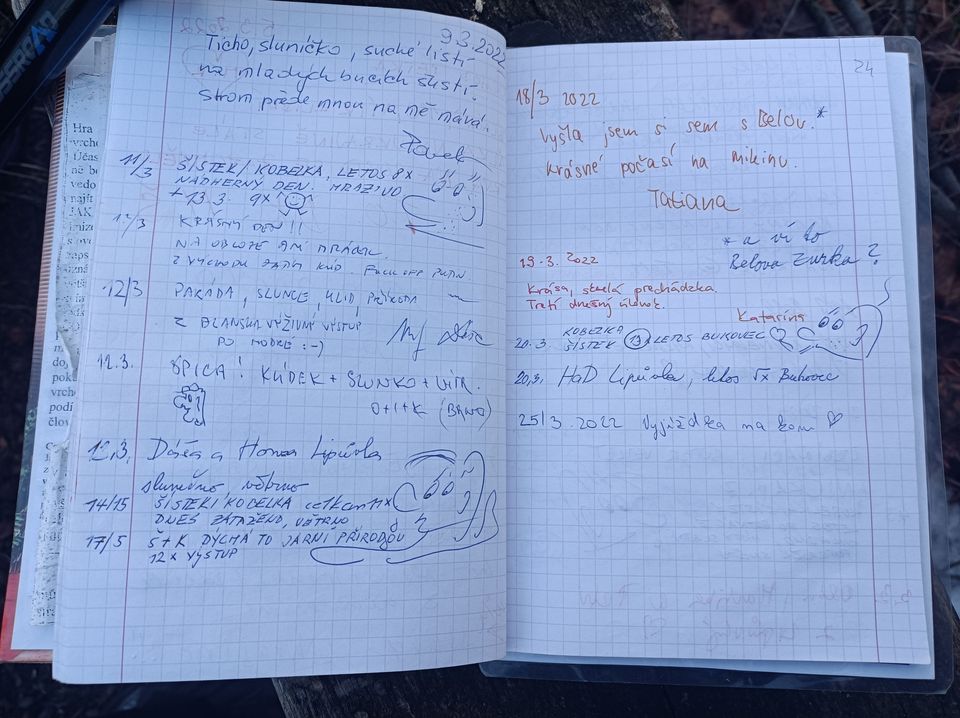 9.3.2022
Ticho, sluníčko, suché listí
na mladých bucích šustí.
Strom přede mnou na mě mává.
Pavel
11/3 ŠÍSTEK/KOBELKA, LETOS 8x
NÁDHERNÝ DEN. MRAZIVO
+ 13.3. 9x
12/3 KRÁSNÝ DEN!!
NA OBLOZE ANI MRÁČEK.
Z VÝCHODU ZATÍM KLID. FUCK OFF PUTIN
12/3 PARÁDA, SLUNCE, KLID, PŘÍRODA
Z BLANSKA VÝŽIVNÝ VÝSTUP
PO MODRÉ :-)
12.3. ŠPICA! KLÍDEK + SLUNKO + VÍTR.
O+I+K (BRNO)
12.3. Dáša a Honza Lipůvka
slunečno větrno
14/15 ŠÍSTEK/KOBELKA celkem 11x
DNES ZATAŽENO, VĚTRNO
17/5 Š+K DÝCHÁ TO JARNÍ PŘÍRODOU
12x VÝSTUP
24
18/3 2022
Vyšla jsem si sem s Belou.*
Krásné počasí na mikinu.
Tatiana
* a ví to
Belova Zurka?
19.3.2022
Krása, skvelá prechádzka.
Tretí dnešný úlovok.
Katarína
20.3. KOBELKA
ŠÍSTEK 13x LETOS BUKOVEC
20.3. HaD Lipůvka, letos 5x Bukovec
25/3. 2022 Vyjížďka na koni ♡